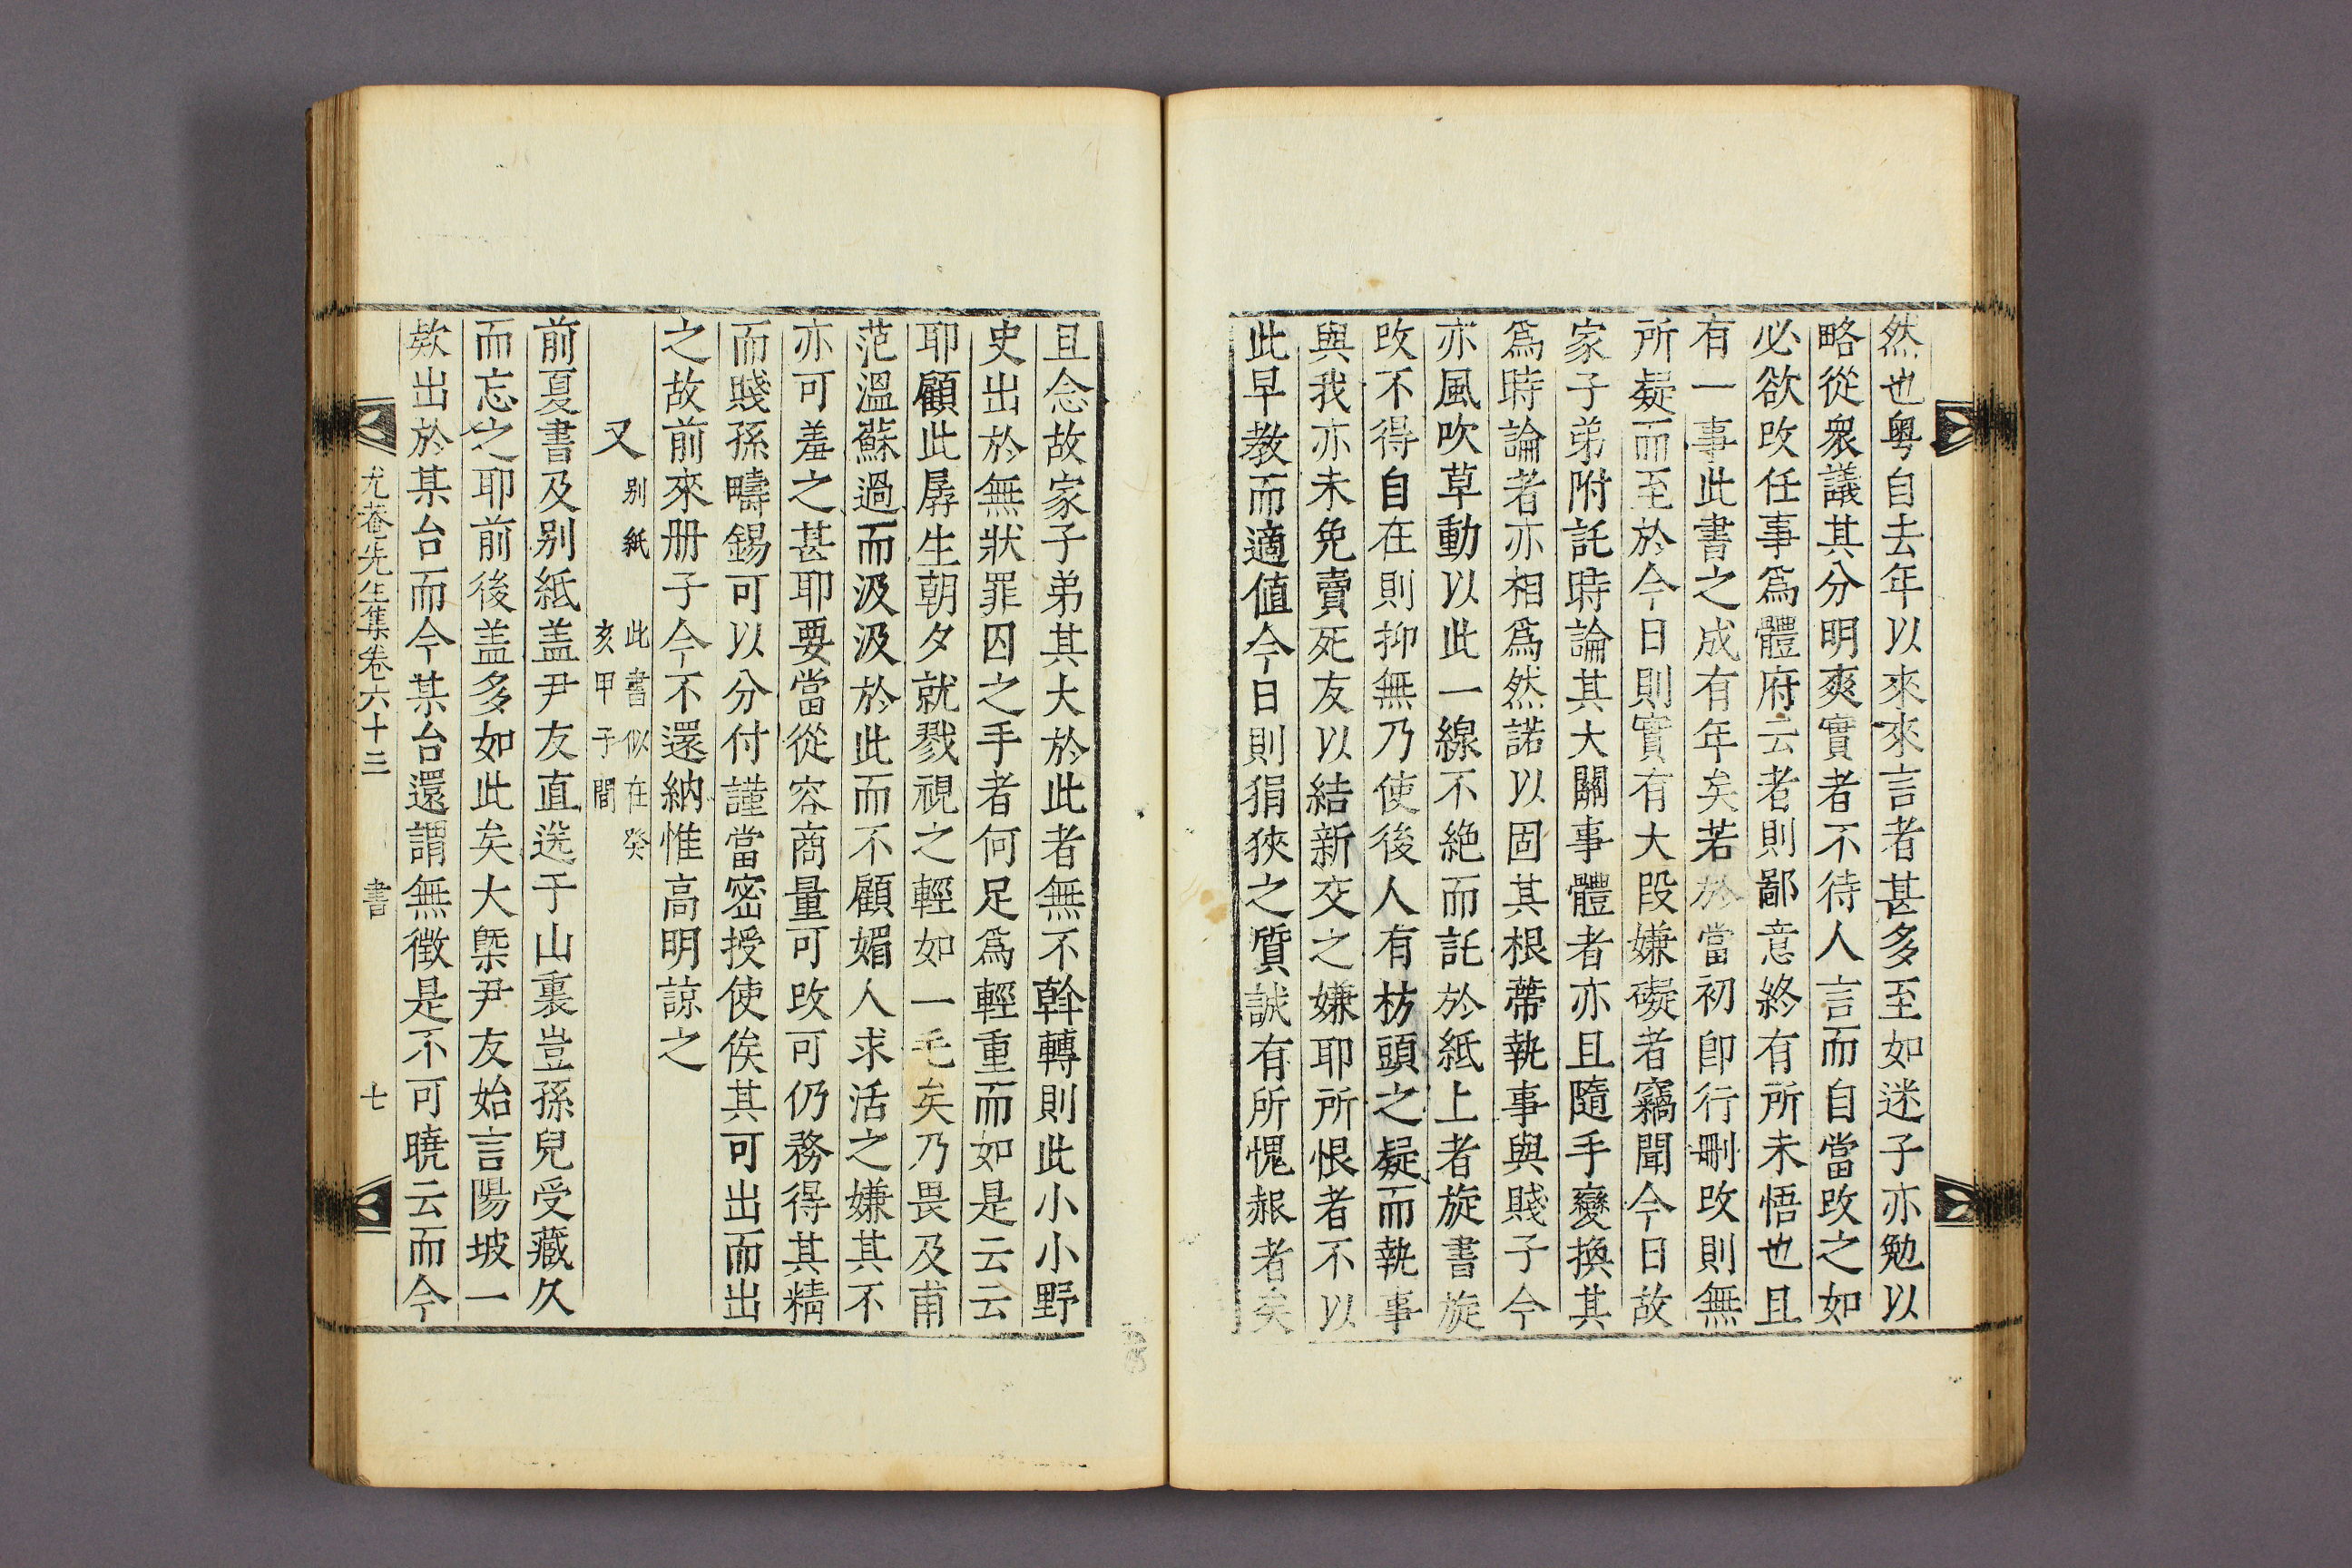 然也粤自去年以來來言者甚多至如迷子亦勉以
略從衆議其分明爽實者不待人言而自當改之如
必欲改任事爲體府云者則鄙意終有所未悟也且
有一事此書之成有年矣若於當初卽行刪改則無
所疑而至於今日則實有大段嫌礙者竊聞今日故
家子弟附託時論其大關事體者亦且隨手變換其
爲時論者亦相爲然諾以固其根蔕執事與賤子今
亦風吹草動以此一線不絶而託於紙上者旋書旋
改不得自在則抑無乃使後人有枋頭之疑而執事
與我亦未免賣死友以結新交之嫌耶所恨者不以
此早教而適値今日則狷狹之質誠有所愧赧者矣
且念故家子弟其大於此者無不斡轉則此小小野
史出於無狀罪囚之手者何足爲輕重而如是云云
耶顧此孱生朝夕就戮視之輕如一毛矣乃畏及甫
范溫蘇過而汲汲於此而不顧媚人求活之嫌其不
亦可羞之甚耶要當從容商量可改可仍務得其精
而賤孫疇錫可以分付謹當密授使俟其可出而出
之故前來册子今不還納惟高明諒之
又 别紙 此書似在癸亥甲子間
前夏書及别紙盖尹友直送于山裏豈孫兒受藏久
而忘之耶前後盖多如此矣大槩尹友始言陽坡一
欵出於某台而今某台還謂無徵是不可曉云而今
尤菴先生集卷六十三 書 七